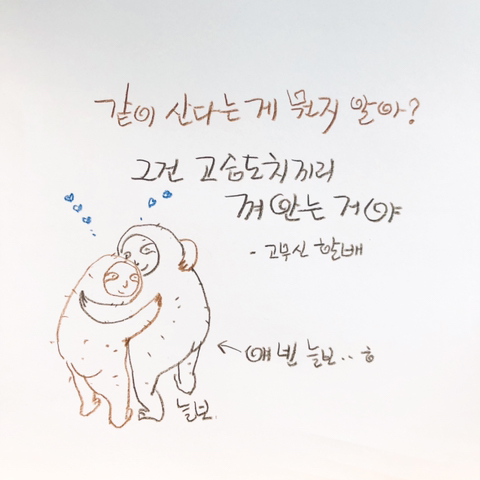 같이 산다는게 뭔지 알아?
그건 고슴도치끼리
껴안는 거야
- 고무신 할배
← 얘넨 늘보..ㅎ
늘보.